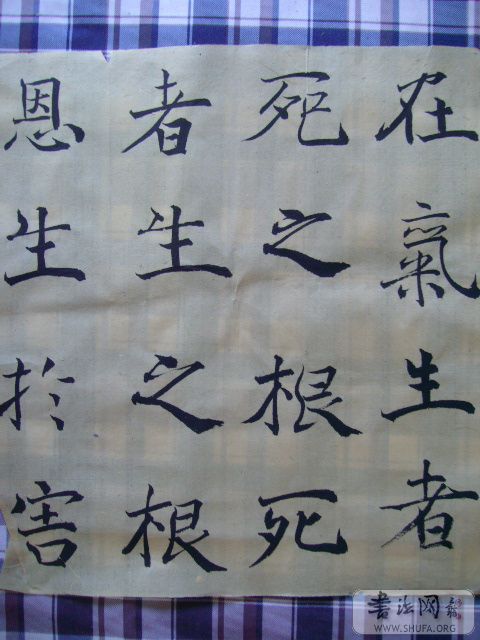 在氣生者
死之根死
者生之根
恩生於害
書法网
WWW.SHUFA.ORG